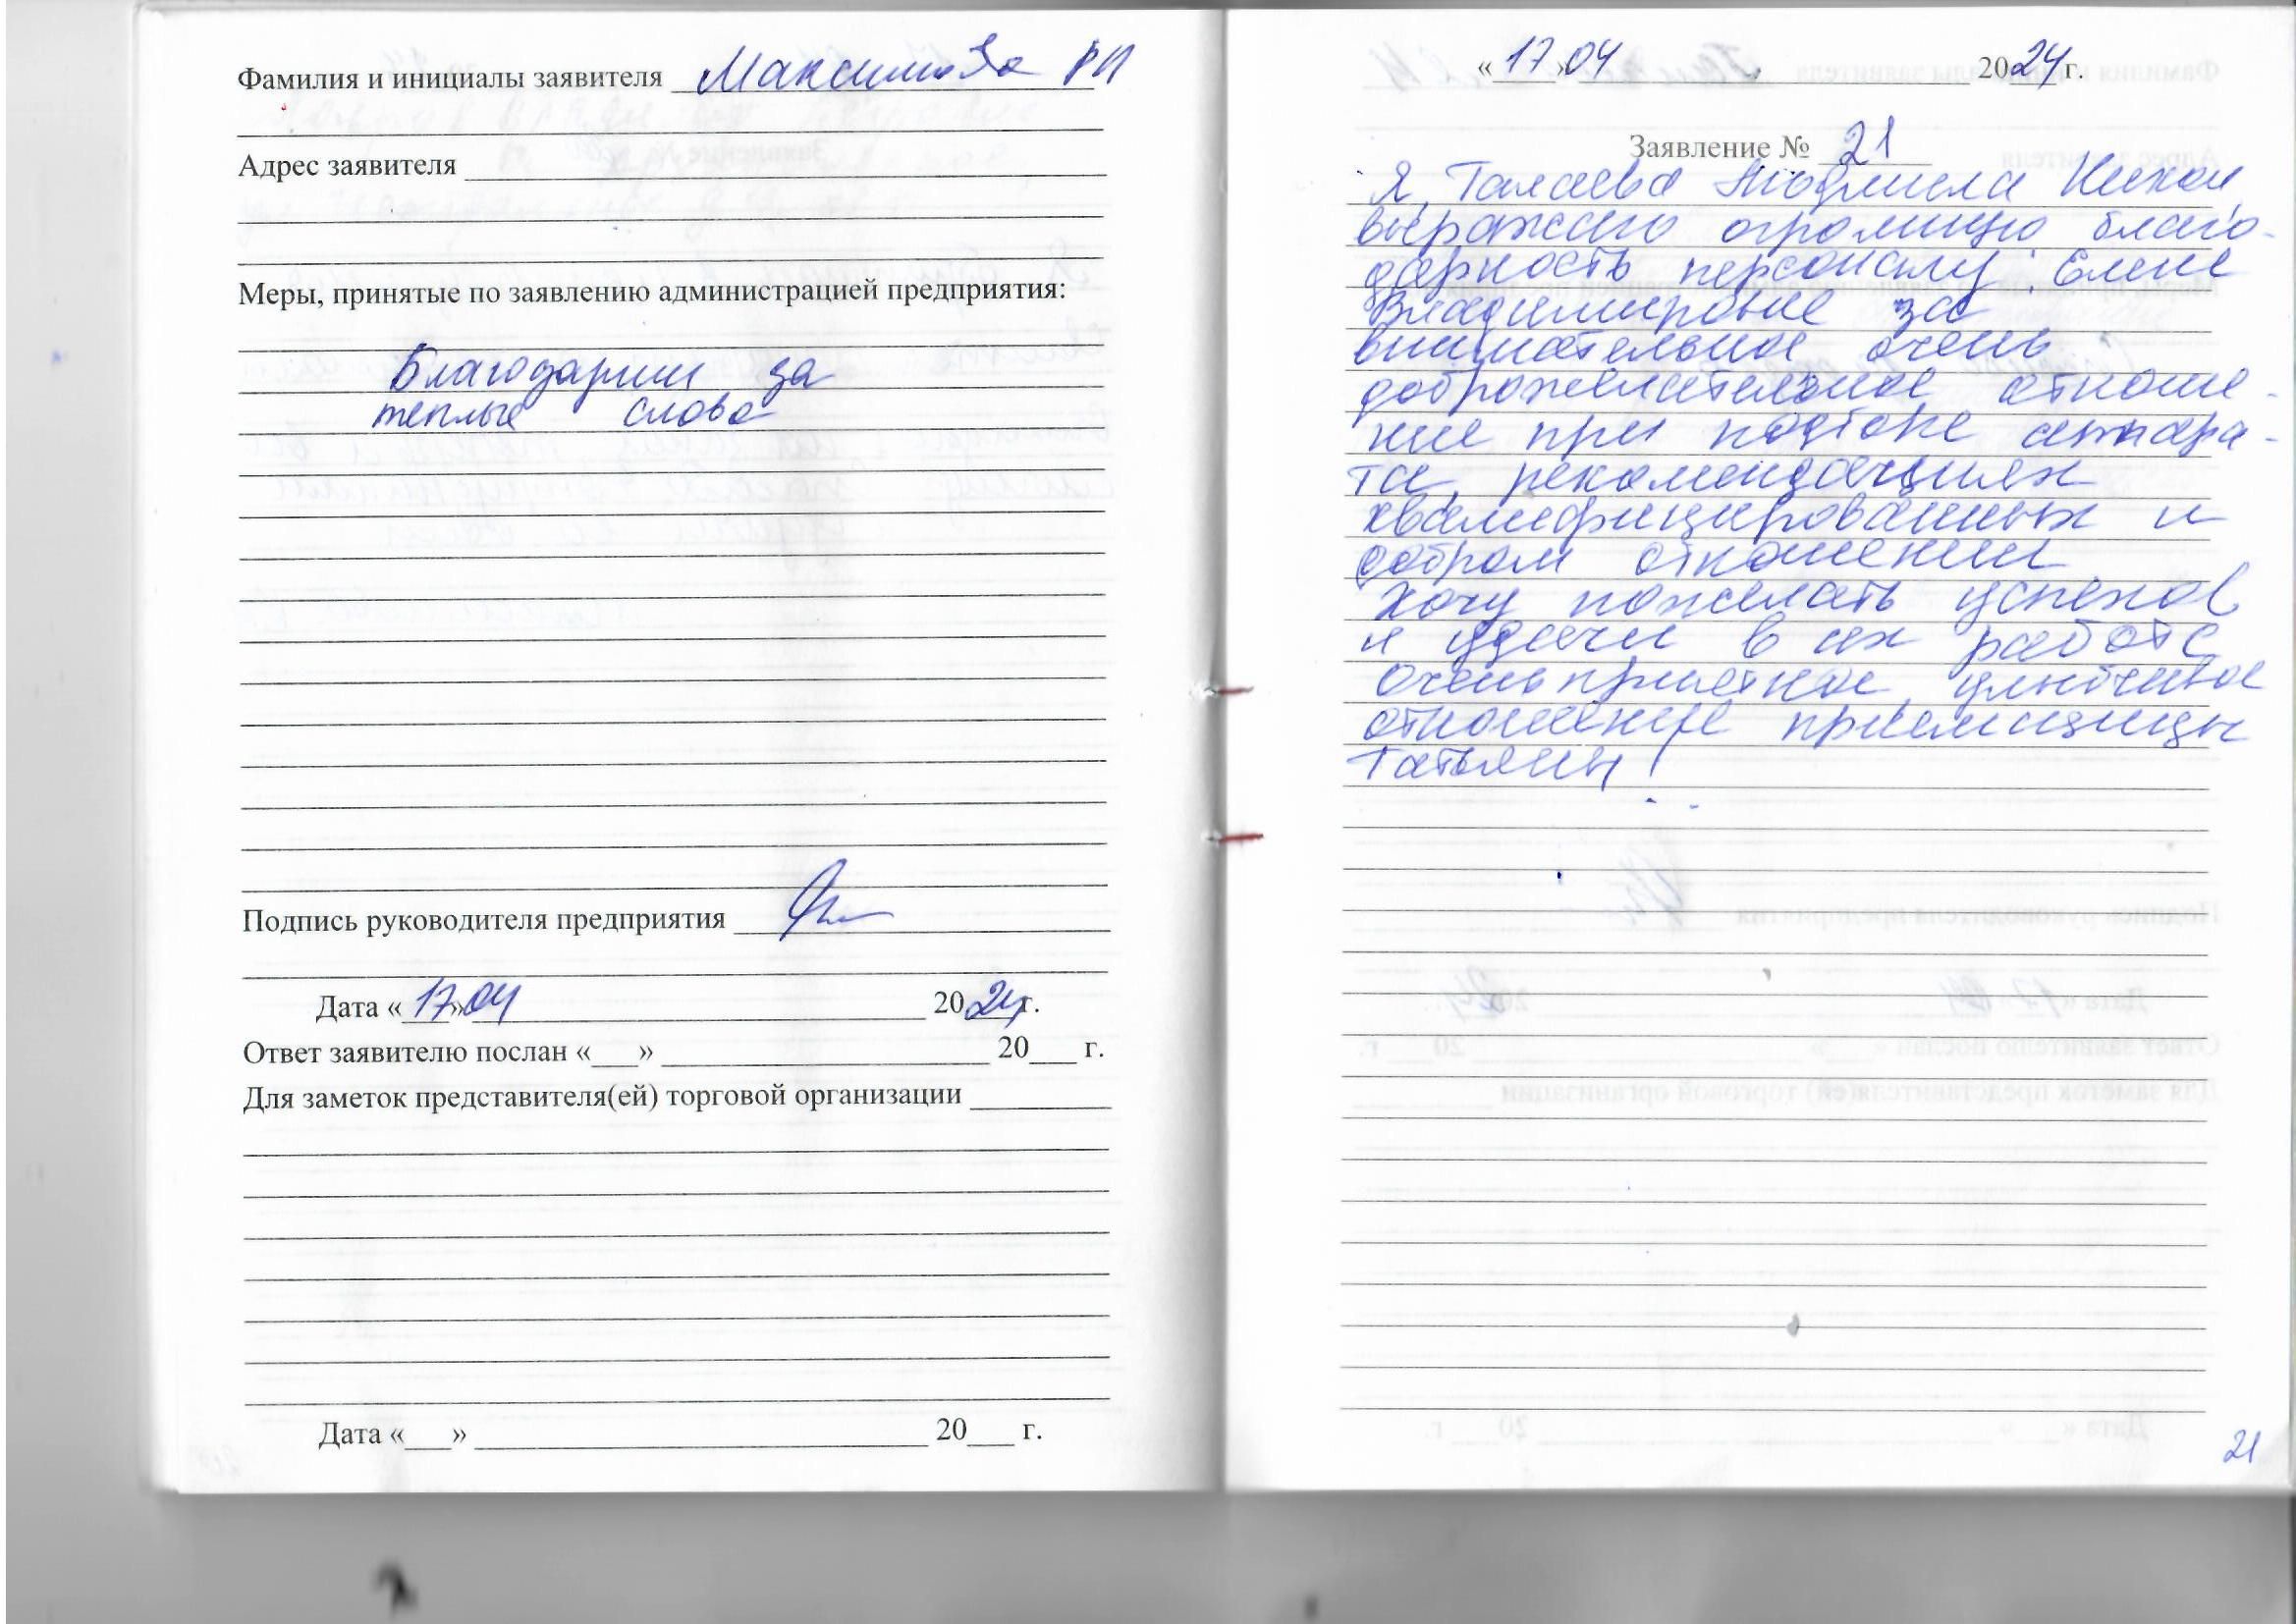 Фамилия и инициалы заявителя Максимова РП
Адрес заявителя
Меры, принятые по заявлению администрацией предприятия:
Благодарим за
теплые слова
Подпись руководителя предприятия
Дата «17» 04 2024г.
Ответ заявителю послан «___» 20___ г.
Для заметок представителя(ей) торговой организации
Дата «___» 20___ г.
«17» 04 2024г.
Заявление № 21
Я, Людмила
выражаю огромную благо-
дарность персоналу: Елене
Владимировне за
внимательное очень
доброжелательное отноше-
ние при подборе аппара-
та, рекомендациях
квалифицированных и
добром отношении
Хочу пожелать успехов
и удачи в их работе
Очень приятное, улыбчивое
отношение приемщицы
Татьяны!
21